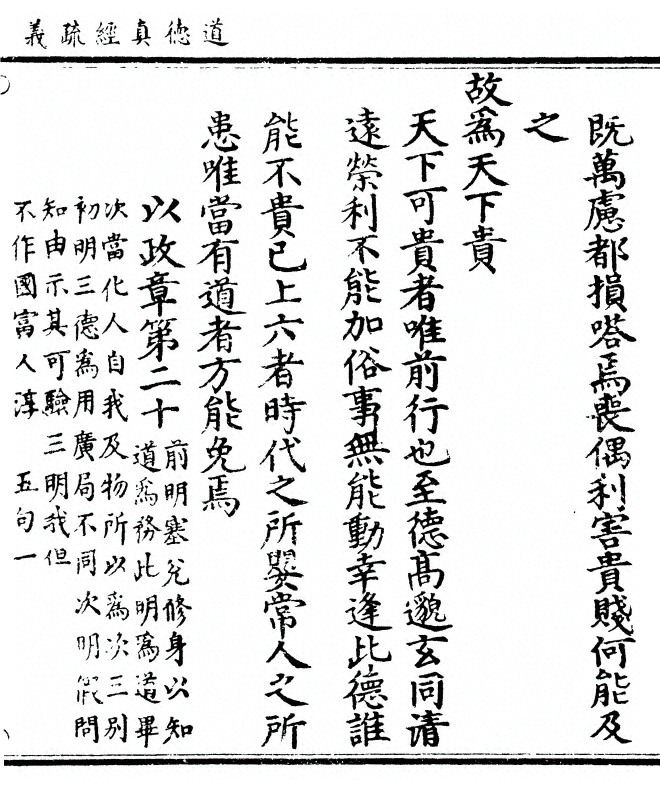 道德真經疏義
既萬慮都損嗒焉喪偶利害貴賤何能及
之
故爲天下貴
天下可貴者唯前行也至德高邈玄同清
遠榮利不能加俗事無能動幸逢此德誰
能不貴已上六者時代之所嬰常人之所
患唯當有道者方能免焉
以政章第二十
前明塞兊修身以知
道爲務此明爲道畢
次當化人自我及物所以爲次三别
初明三德爲用廣局不同次明假問
知由示其可驗三明我但
不作國富人淳　五句一